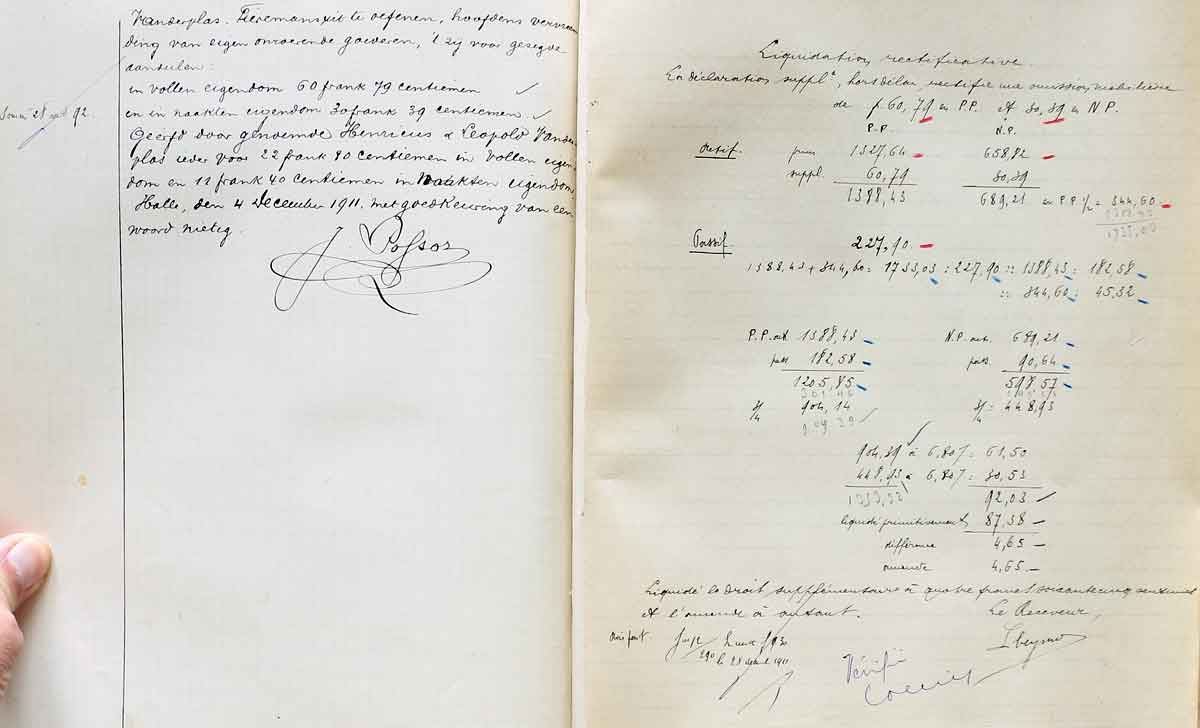 Vanderplas. Tieremansxit te oefenen, hoofdens vervreem
ding van eigen onroerende goederen, 't zij voor gezegde
aandeelen:
in vollen eigendom 60 frank 79 centiemen
en in naakten eigendom 30 frank 39 centiemen.
Geërfd door genoemde Henricus & Leopold Vander
plas ieder voor 22 frank 80 centiemen in vollen eigen
dom en 11 frank 40 centiemen in naakten eigendom
Halle, den 4 December 1911. met goedkeuring van een
woord nietig.
92.
Liquidation rectificative.
La déclaration supplre, hors délai, rectifie une omission mobilière
de f 60,79 en P.P. et 30,39 en N.P.
P.P. N.P.
Actif. prim 1327,64 658,82
suppl. 60,79 30,39
1388,43 689,21 en P.P. 1/2 = 344,60
Passif. 227,90
1388,43 + 344,60 = 1733,03 : 227,90 :: 1388,43 : 182,58
:: 344,60 : 45,32
P.P. act. 1388,43 N.P. act. 689,21
pass. 182,58 pass. 90,64
1205,85 598,57
3/4 904,14 3/4 = 448,93
904,39 à 6,80% = 61,50
448,93 à 6,80% = 30,53
92,03
liquidé primitivement 87,38
différence 4,65
amende 4,65
Liquidé le droit supplémentaire à quatre francs soixante cinq centimes
et l'amende à autant. Le Receveur,
290 le 28 1911
Vérifié